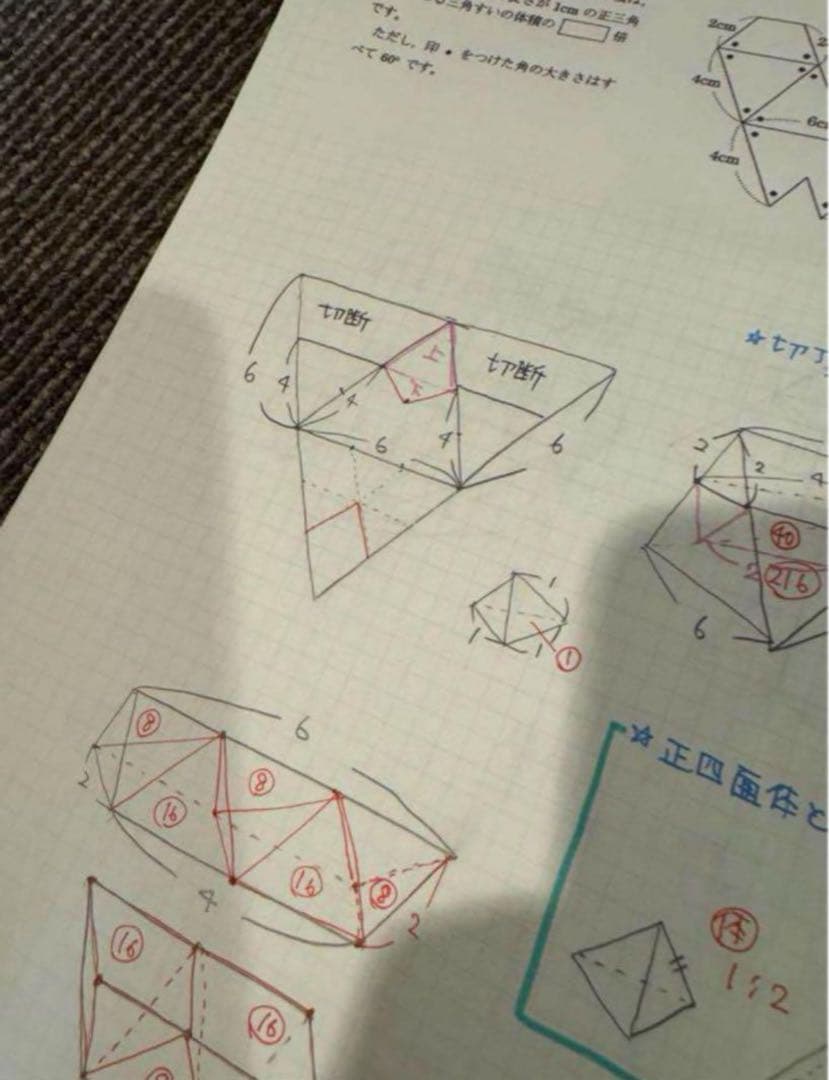 さが1cmの正三角
三角すいの体積の 倍
です。
ただし、印 • をつけた角の大きさはす
べて60°です。
2cm
4cm
6c
4cm
切断
上
切断
下
6
4
4
6
4
6
☆切
2
2
4
㊵
2
216
6
1
1
1
1
①
⑧
6
⑧
2
⑯
⑯
⑧
4
2
⑯
⑯
☆正四面体と
体
1:2